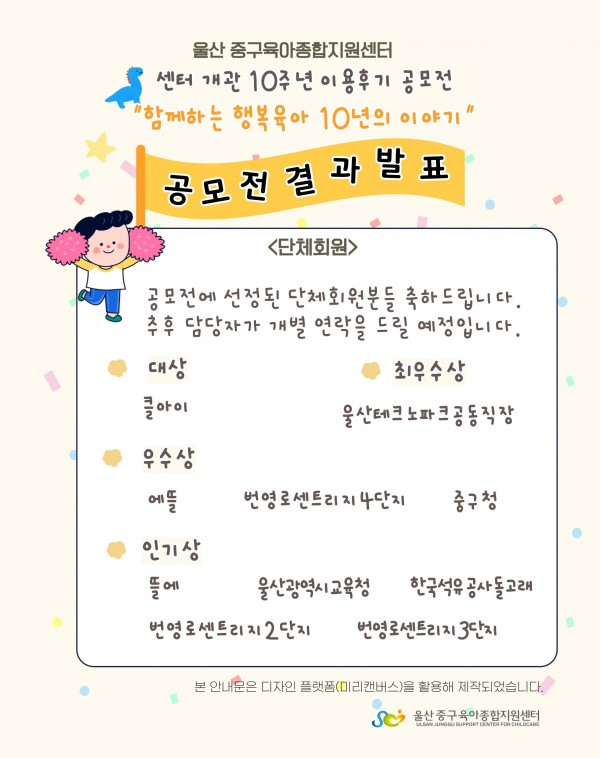 울산 중구육아종합지원센터
센터 개관 10주년 이용후기 공모전
"함께하는 행복육아 10년의 이야기"
공모전결과발표
<단체회원>
공모전에 선정된 단체회원분들 축하드립니다.
추후 담당자가 개별 연락을 드릴 예정입니다.
대상 최우수상
클아이 울산테크노파크공동직장
우수상
에뜰 번영로센트리지4단지 중구청
인기상
뜰에 울산광역시교육청 한국석유공사돌고래
번영로센트리지2단지 번영로센트리지3단지
본 안내문은 디자인 플랫폼(미리캔버스)을 활용해 제작되었습니다.
울산 중구육아종합지원센터
ULSAN JUNGGU SUPPORT CENTER FOR CHILDCARE